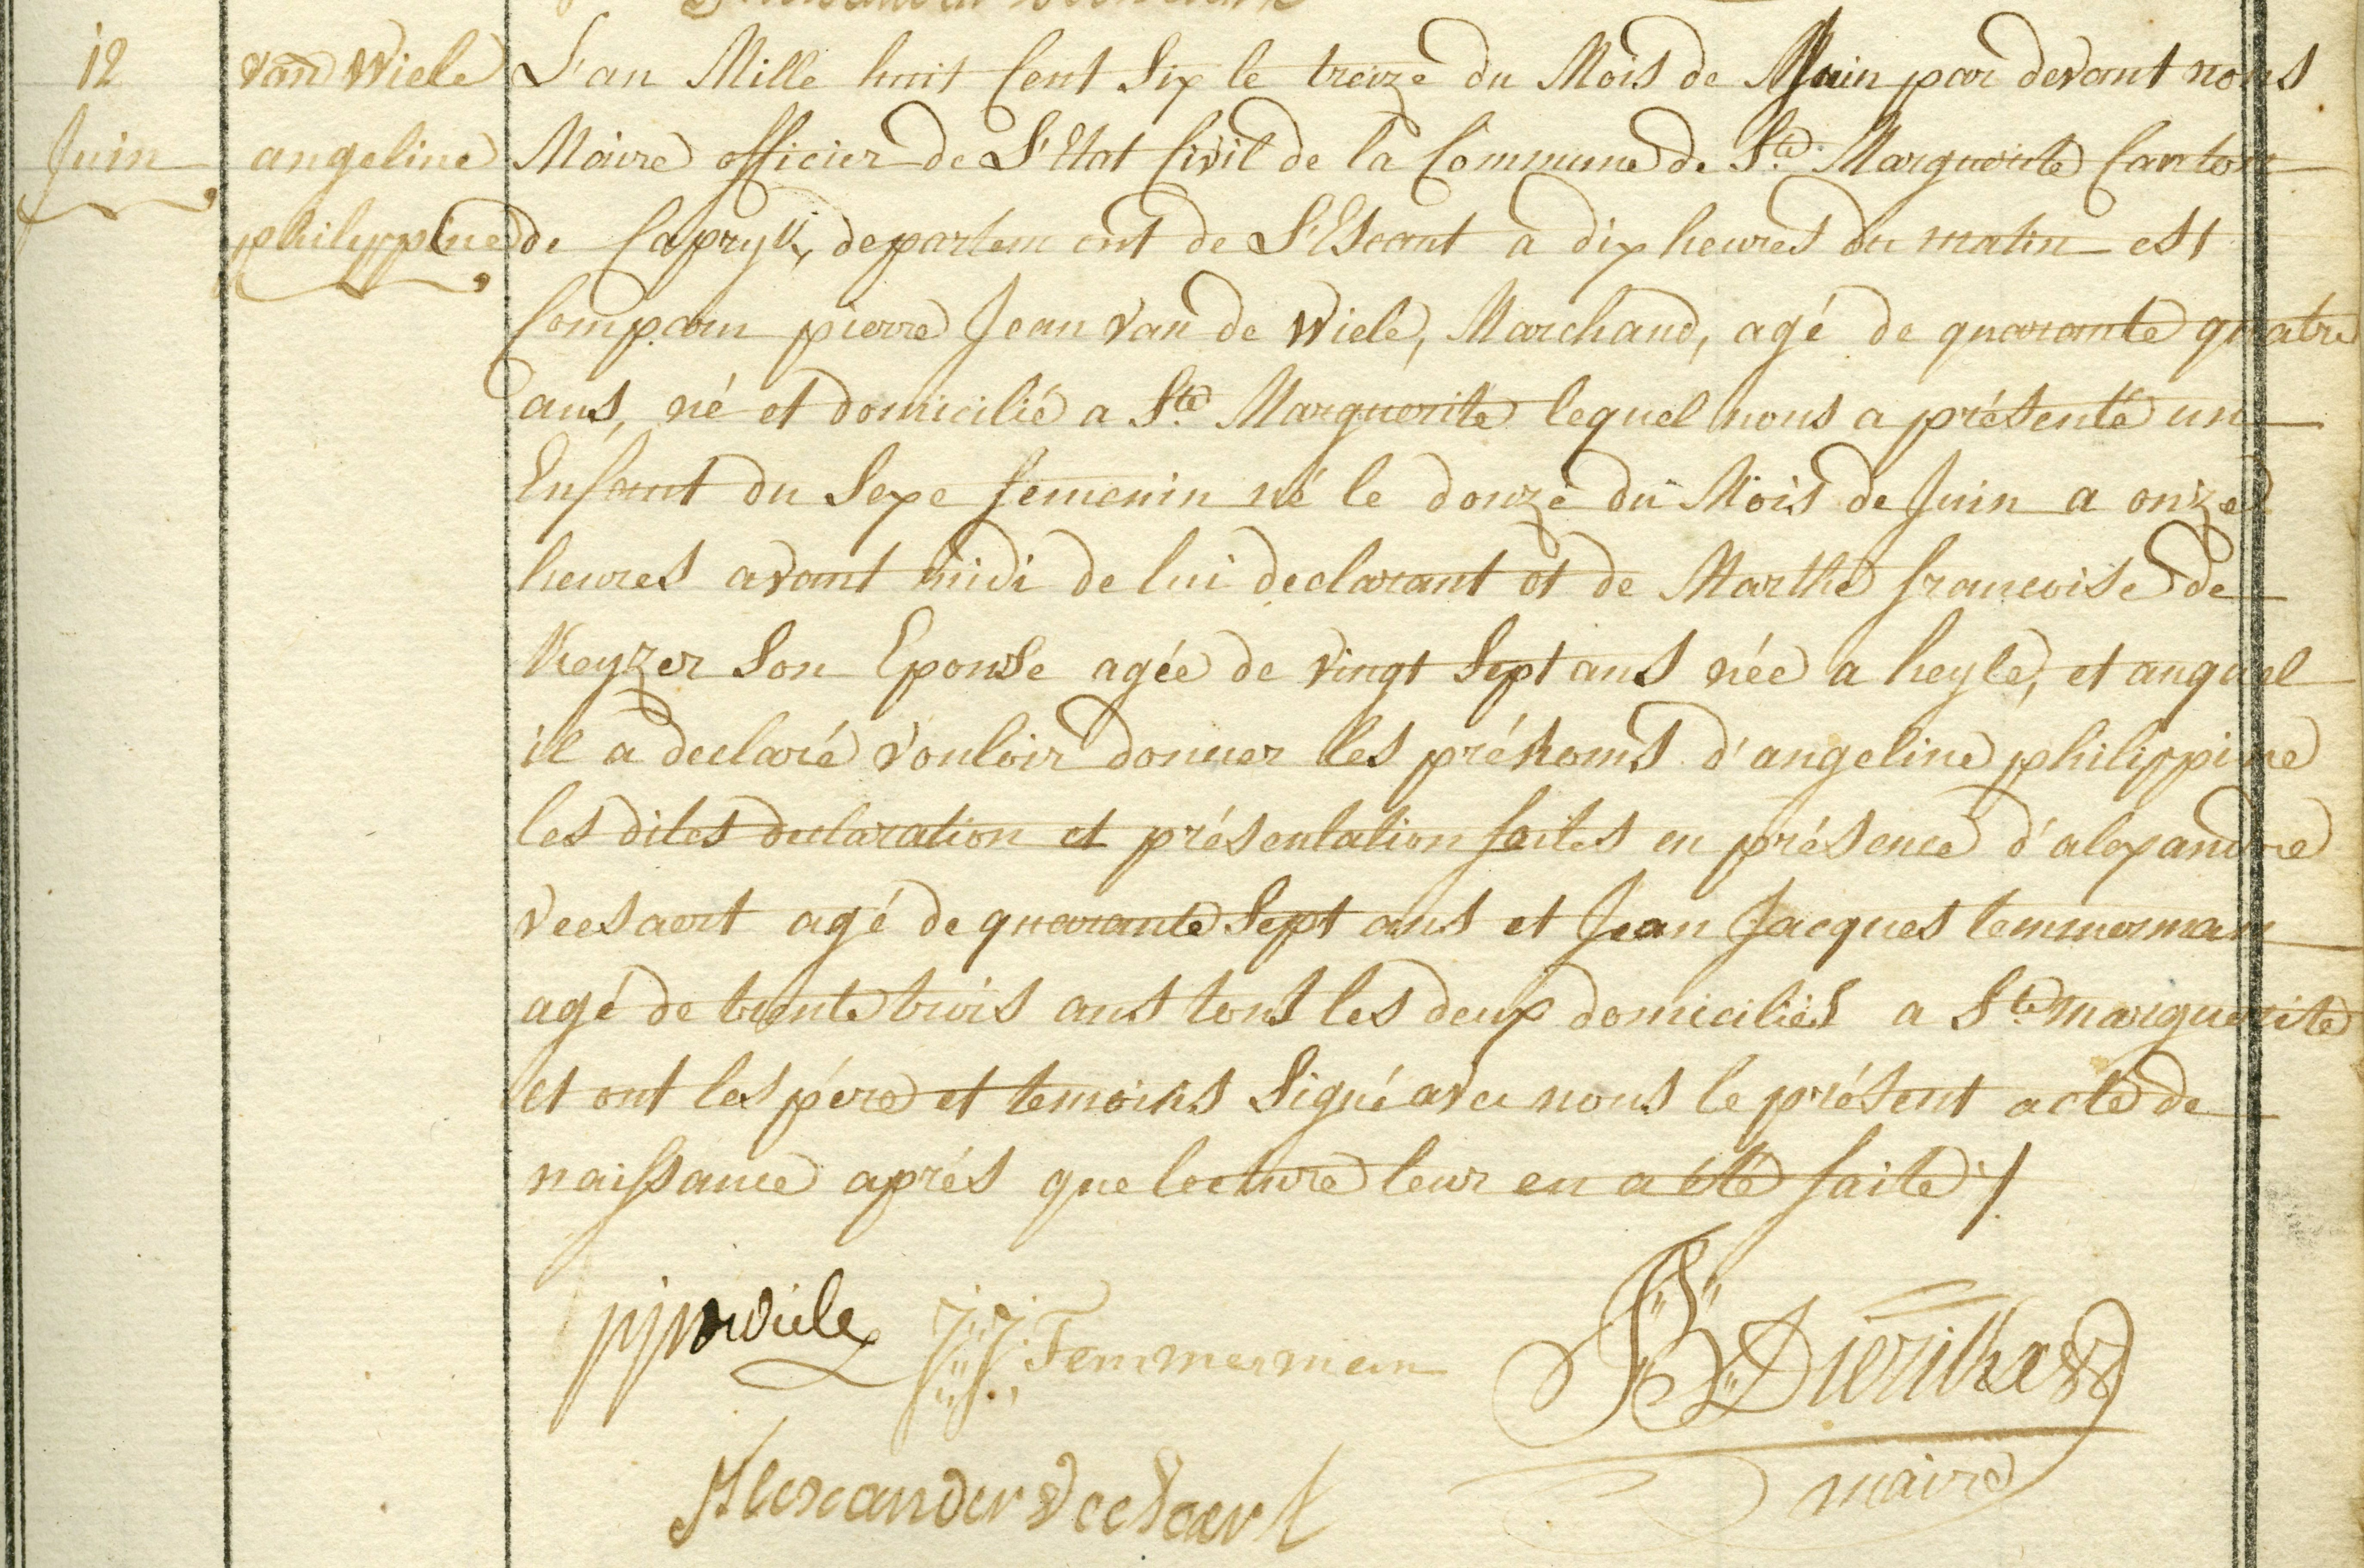 12
Juin
van Wiele
angeline
philippine
L'an Mille huit Cent Six le treize du Mois de Juin par devant nous
Maire officier de L'Etat Civil de la Commune de Ste. Marguerite Canton
de Capryk, departement de L'Escaut a dix heures du matin est
Comparu pierre Jean van de Wiele, Marchand, agé de quarante quatre
ans, né et domicilié a Ste. Marguerite lequel nous a présenté un
Enfant du Sexe femenin né le douze du Mois de Juin a onze
heures avant midi de lui declarant et de Marthe francoise de
Keyzer Son Epouse agée de vingt Sept ans née a heyle, et auquel
il a declaré vouloir donner les prénoms d'angeline philippine
les dites declaration et présentation faites en présence d'alexandre
veesaert agé de quarante Sept ans et Jean Jacques temmerman
agé de trente trois ans tous les deux domiciliés a Ste. marguerite
et ont les pére et temoins Signé avec nous le présent acte de
naissance aprés que lecture leur en a été faite ./.
pjvwiele
J: J: Temmerman
Alexander veesaert
maire